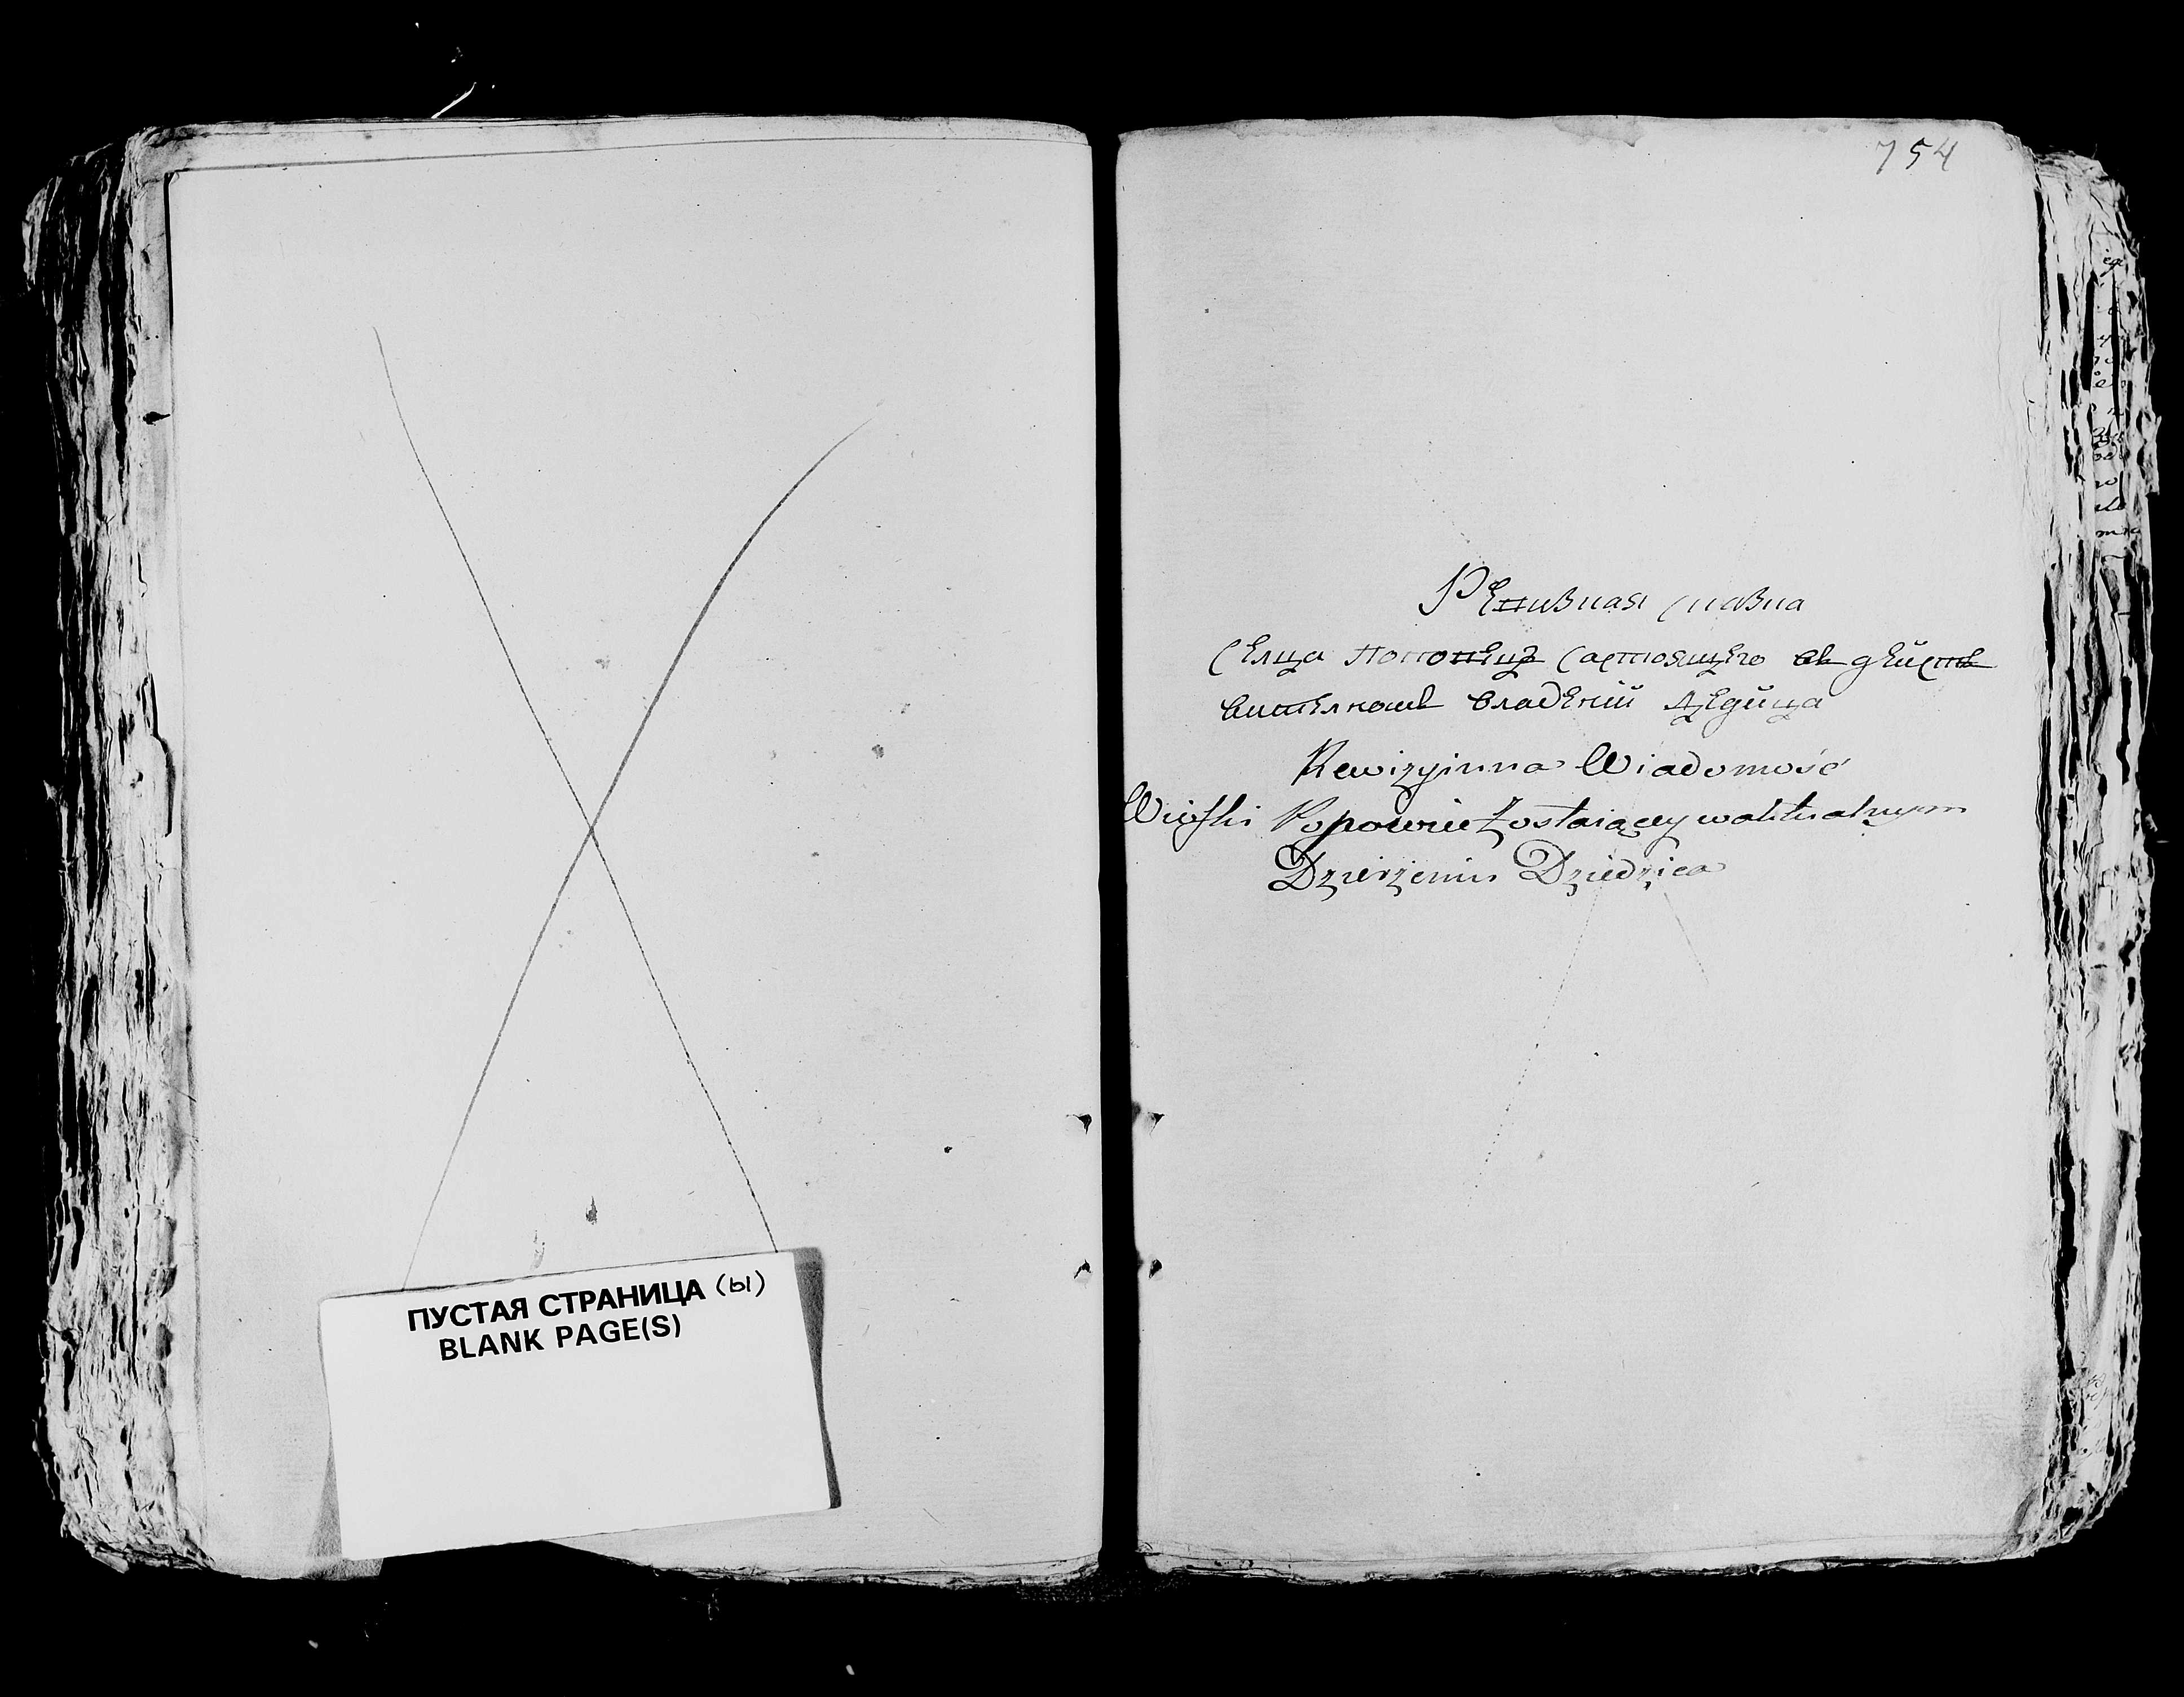 ПУСТАЯ СТРАНИЦА (Ы)
BLANK PAGE(S)
754
Сельца Састоящего въ дейст
вителномъ владений Дедица
Rewizyinna Wiadomość
Wioski Popowiec Zostaiącey w aktualnym
Dzierżeniu Dziedzica